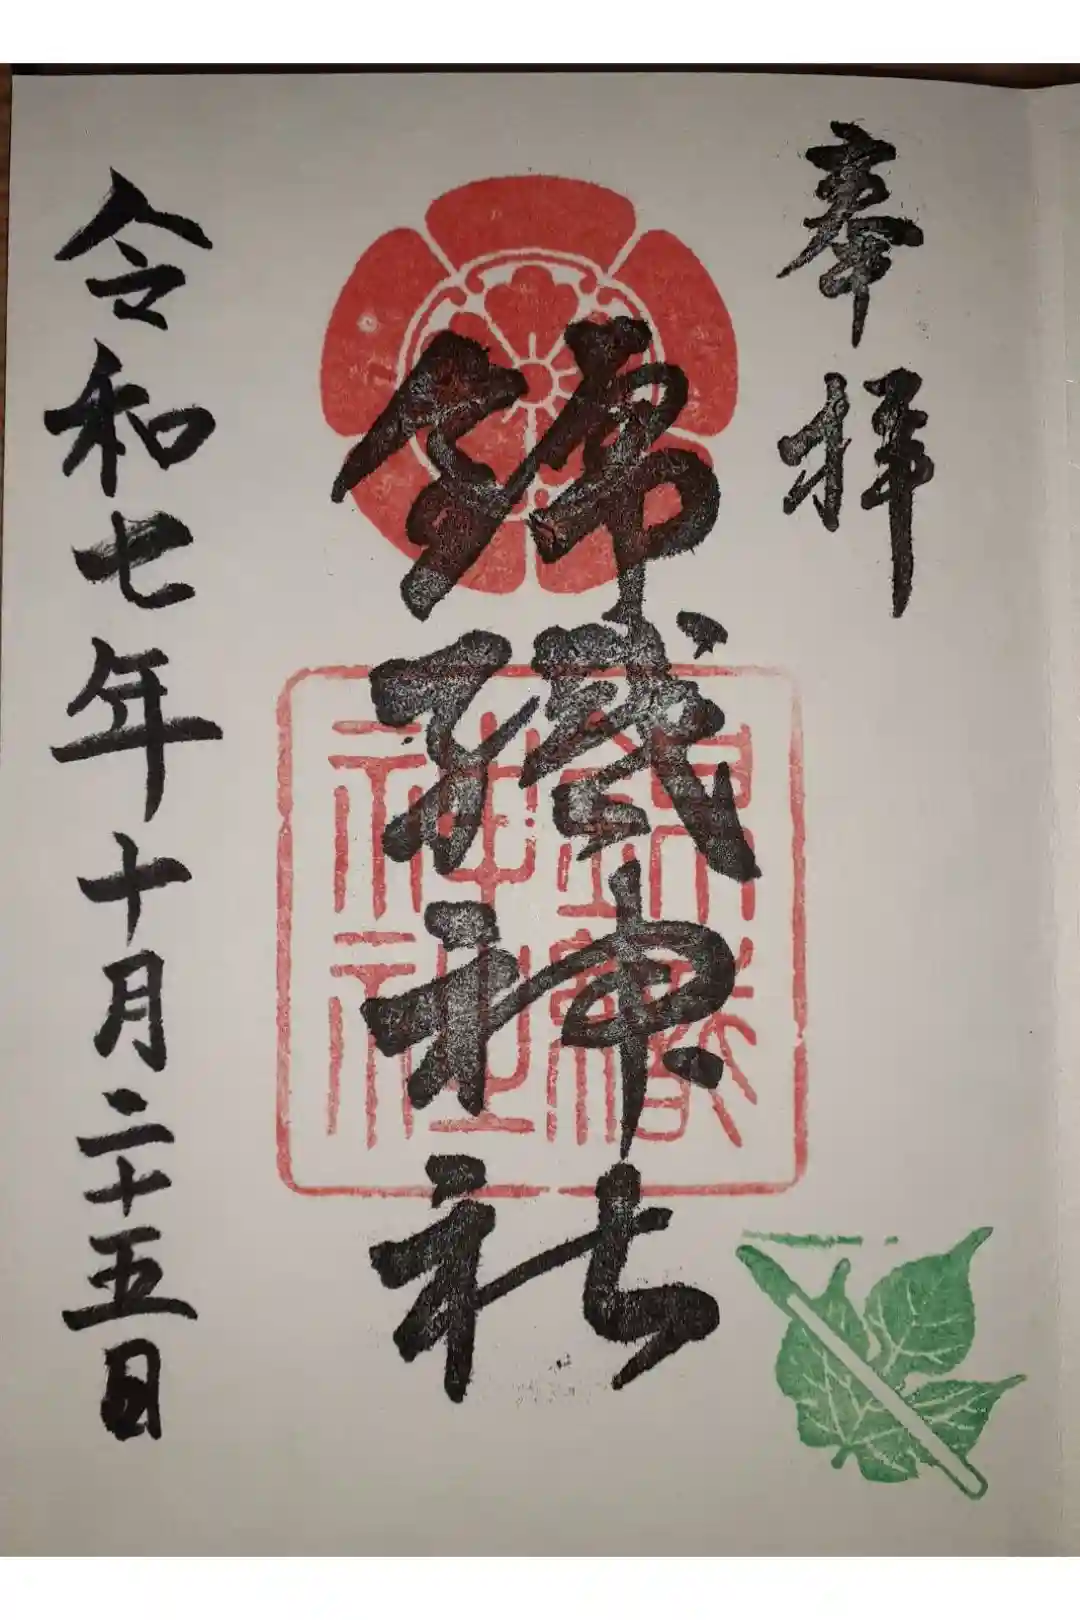 奉拝
錦織神社
錦織
神社
令和七年十月二十五日